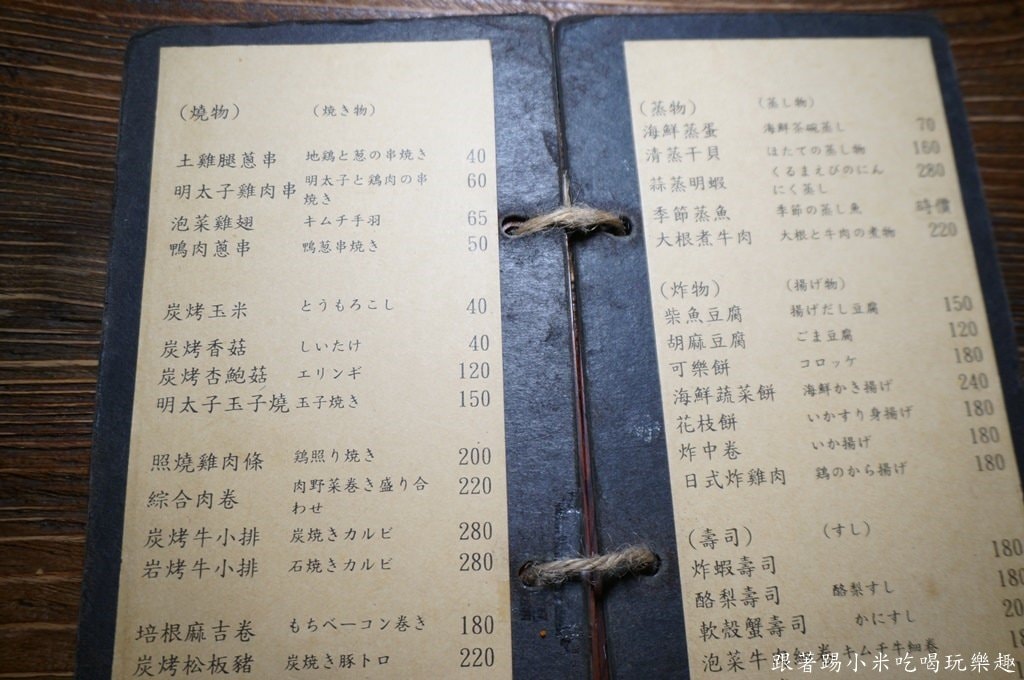 (燒物) (焼き物)
土雞腿蔥串 地鶏と葱の串焼き 40
明太子雞肉串 明太子と鶏肉の串焼き 60
泡菜雞翅 キムチ手羽 65
鴨肉蔥串 鴨葱串焼き 50
炭烤玉米 とうもろこし 40
炭烤香菇 しいたけ 40
炭烤杏鮑菇 エリンギ 120
明太子玉子燒 玉子焼き 150
照燒雞肉條 鶏照り焼き 200
綜合肉卷 肉野菜巻き盛り合わせ 220
炭烤牛小排 炭焼きカルビ 280
岩烤牛小排 石焼きカルビ 280
培根麻吉卷 もちベーコン巻き 180
炭烤松板豬 炭焼き豚トロ 220
(蒸物) (蒸し物)
海鮮蒸蛋 海鮮茶碗蒸し 70
清蒸干貝 ほたての蒸し物 160
蒜蒸明蝦 くるまえびのにんにく蒸し 280
季節蒸魚 季節の蒸し魚 時價
大根煮牛肉 大根と牛肉の煮物 220
(炸物) (揚げ物)
柴魚豆腐 揚げだし豆腐 150
胡麻豆腐 ごま豆腐 120
可樂餅 コロッケ 180
海鮮蔬菜餅 海鮮かき揚げ 240
花枝餅 いかすり身揚げ 180
炸中卷 いか揚げ 180
日式炸雞肉 鶏のから揚げ 180
(壽司) (すし)
炸蝦壽司 180
酪梨壽司 酪梨すし
軟殼蟹壽司 かにすし
泡菜牛 キムチ牛細卷
跟著踢小米吃喝玩樂趣